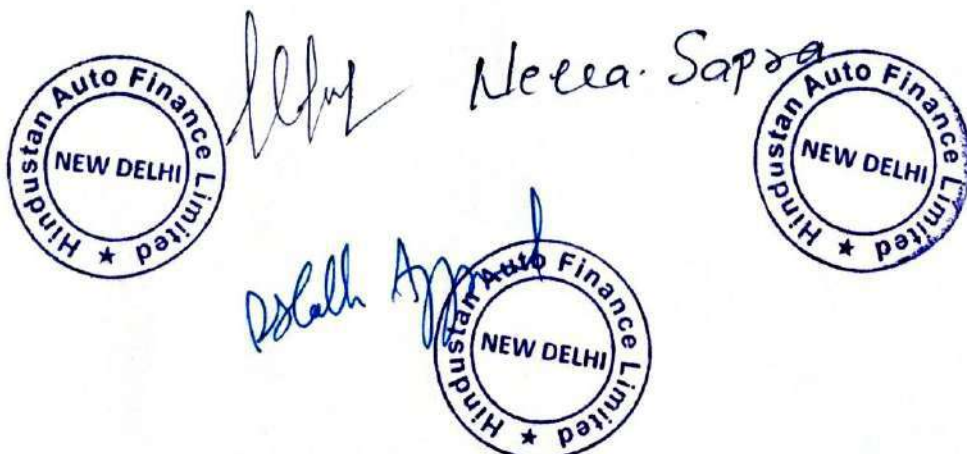 Hindustan Auto Finance Limited ★
NEW DELHI
Neena Sapra
Hindustan Auto Finance Limited ★
NEW DELHI
Hindustan Auto Finance Limited ★
NEW DELHI